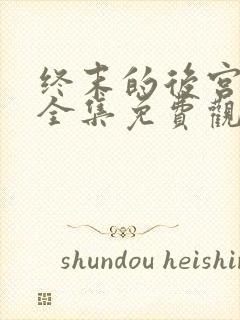 终末的後宫
全集免費觀
shundou heishin